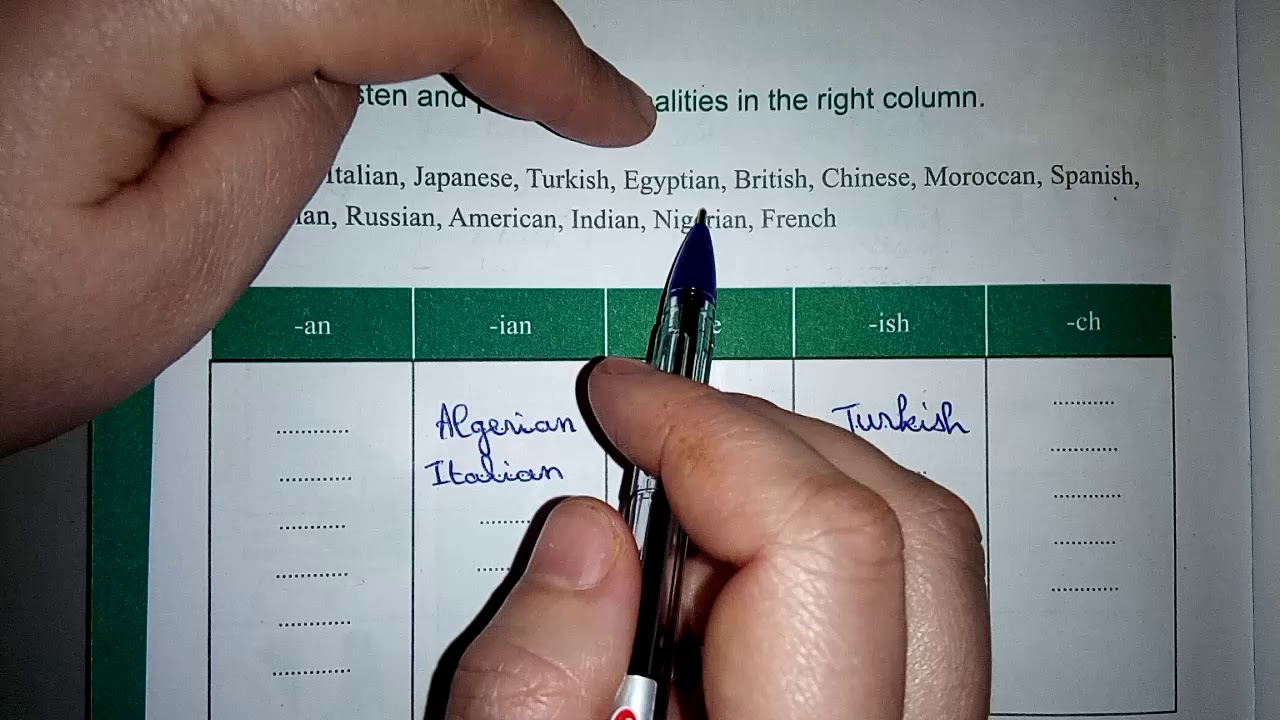 sten and alities in the right column.
Italian, Japanese, Turkish, Egyptian, British, Chinese, Moroccan, Spanish,
ian, Russian, American, Indian, Nigerian, French
-an -ian e -ish -ch
Algerian Turkish
Italian